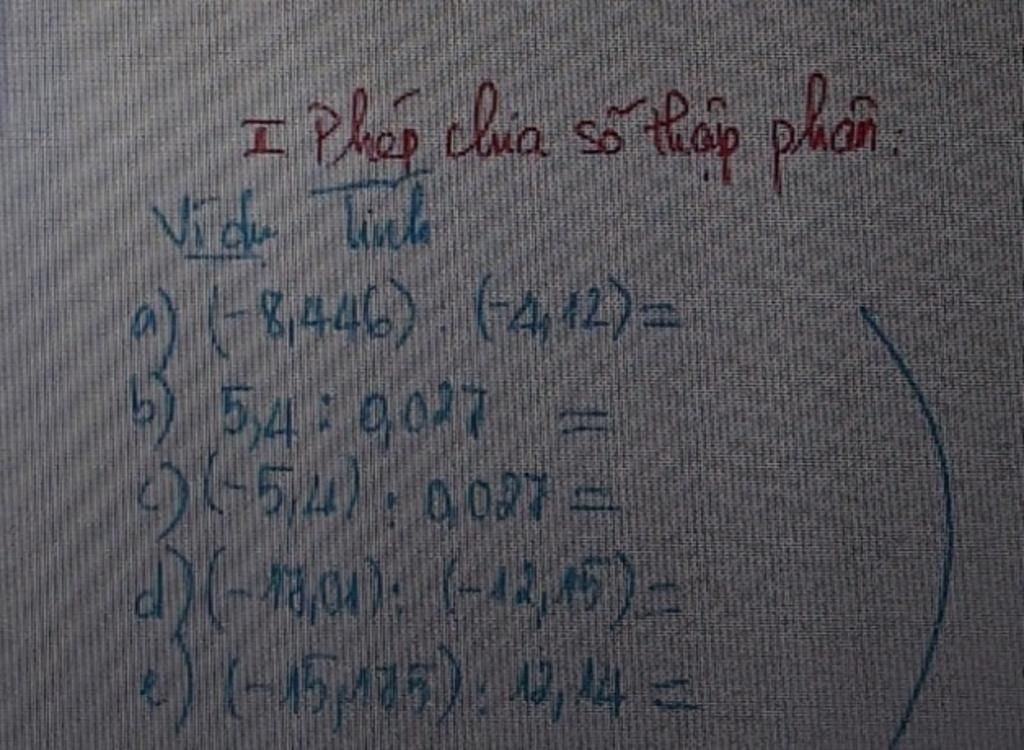 I Phép chia số thập phân:
Ví dụ Tính
a) (-8,446) : (-4,12) =
b) 5,4 : 0,027 =
c) (-5,4) : 0,027 =
d) (-17,01) : (-12,15) =
e) (-15,175) : 12,14 =